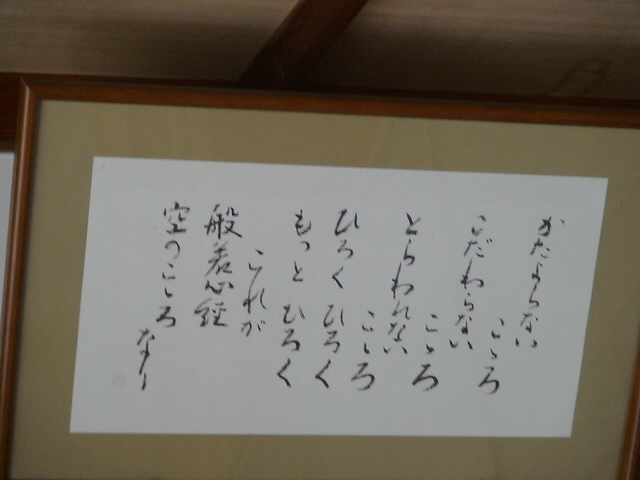 かたよらない
こゝろ
こだわらない
こゝろ
とらわれない
こゝろ
ひろく ひろく
もっと ひろく
これが
般若心経
空のこゝろ
なり